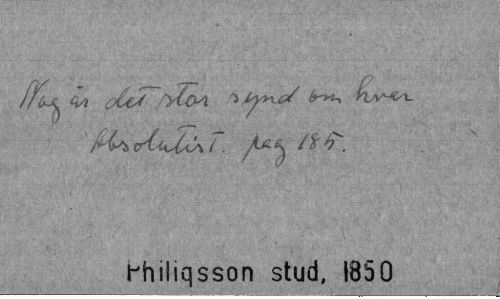 Nog är det stor synd om hvar
Absolutist. pag 185.
Philiqsson stud, 1850